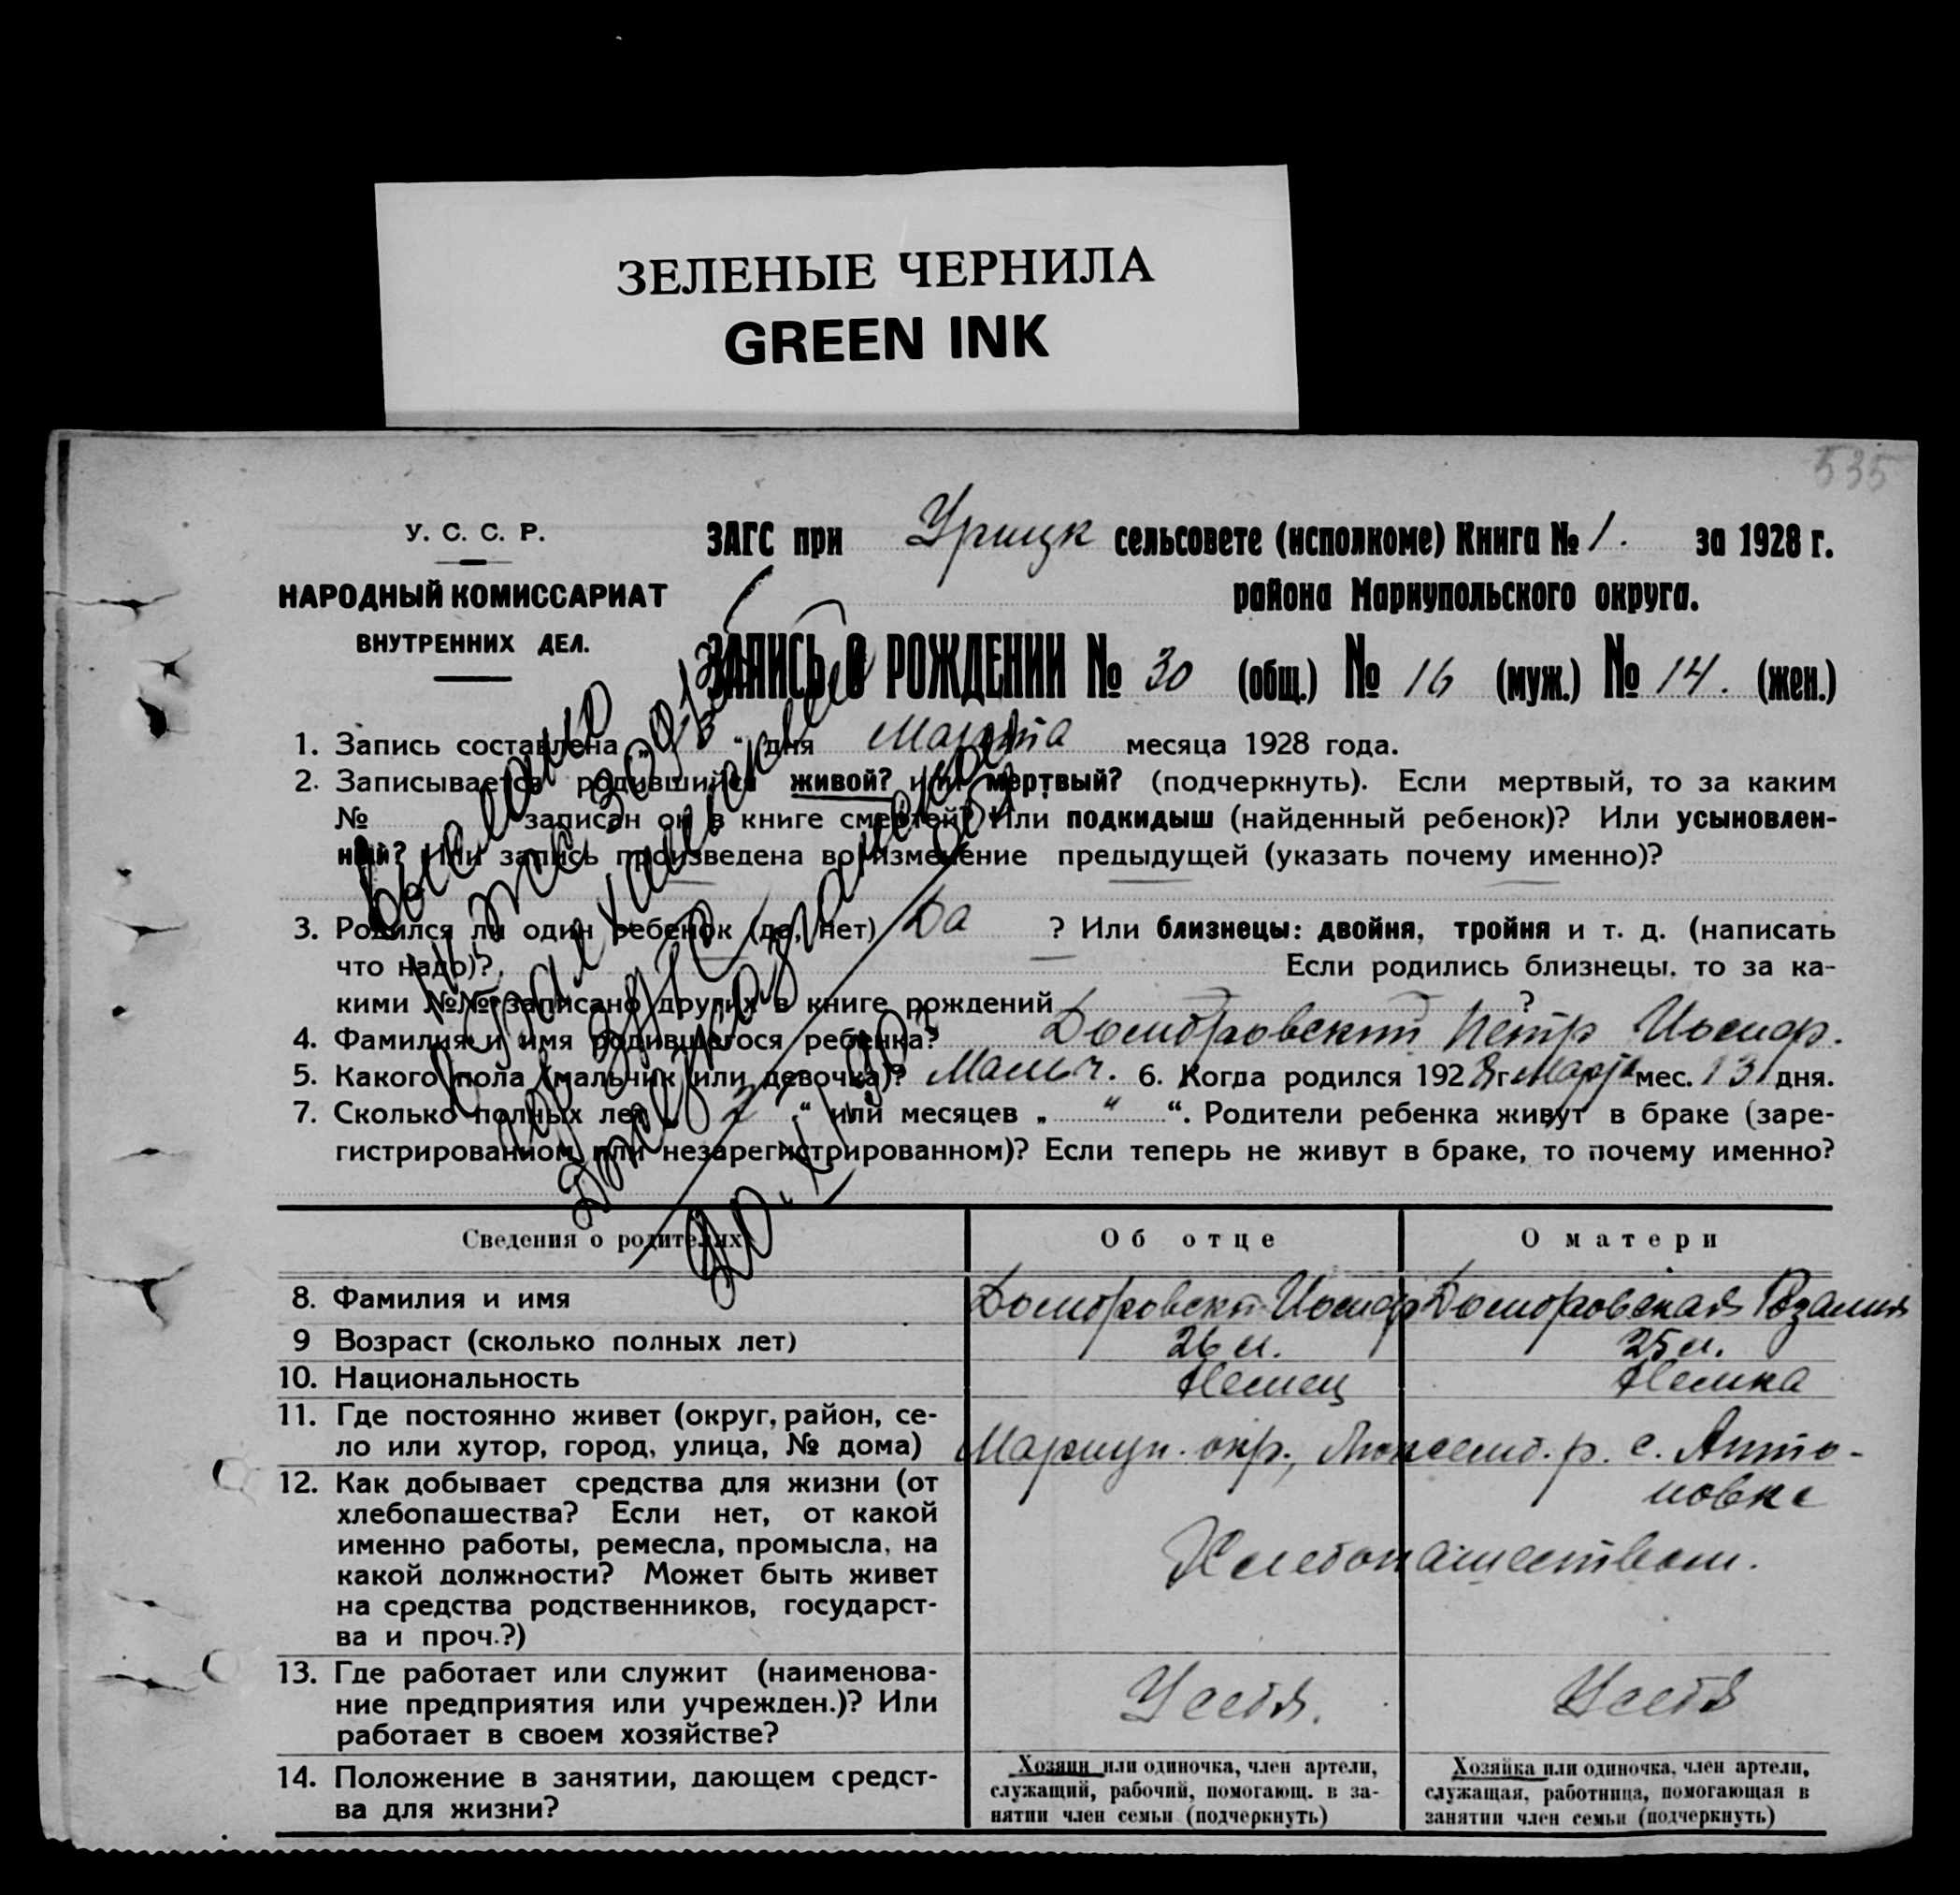 ЗЕЛЕНЫЕ ЧЕРНИЛА
GREEN INK
535
У. С. С. Р.
НАРОДНЫЙ КОМИССАРИАТ
ВНУТРЕННИХ ДЕЛ.
ЗАГС при Урицк сельсовете (исполкоме) Книга № 1. за 1928 г.
района Мариупольского округа.
ЗАПИСЬ О РОЖДЕНИИ № 30 (общ.) № 16 (муж.) № 14. (жен.)
1. Запись составлена „ “ дня Марта месяца 1928 года.
2. Записывается родившийся живой? или мертвый? (подчеркнуть). Если мертвый, то за каким
№ записан он в книге смертей? Или подкидыш (найденный ребенок)? Или усыновлен-
ный? Или запись произведена во изменение предыдущей (указать почему именно)?
3. Родился ли один ребенок (да, нет) Да ? Или близнецы: двойня, тройня и т. д. (написать
что надо)? Если родились близнецы, то за ка-
кими №№ записано других в книге рождений ?
4. Фамилия и имя родившегося ребенка? Домбровский Петр Иосиф.
5. Какого пола (мальчик или девочка)? Мальч. 6. Когда родился 1928 г Марта мес. 13 дня.
7. Сколько полных лет „ 2 “ или месяцев „ “ “. Родители ребенка живут в браке (заре-
гистрированном или незарегистрированном)? Если теперь не живут в браке, то почему именно?
Выслано
30.XI
Сведения о родителях
Об отце
О матери
8. Фамилия и имя
Домбровский Иосиф
Домбровская Розалия
9 Возраст (сколько полных лет)
26 л.
25 л.
10. Национальность
Немец
Немка
11. Где постоянно живет (округ, район, се-
ло или хутор, город, улица, № дома)
Мариуп. окр., Люксемб. р. с. Анто-
новка
12. Как добывает средства для жизни (от
хлебопашества? Если нет, от какой
именно работы, ремесла, промысла, на
какой должности? Может быть живет
на средства родственников, государст-
ва и проч.?)
Хлебопашеством.
13. Где работает или служит (наименова-
ние предприятия или учрежден.)? Или
работает в своем хозяйстве?
У себя.
У себя
14. Положение в занятии, дающем средст-
ва для жизни?
Хозяин или одиночка, член артели,
служащий, рабочий, помогающ. в за-
нятии член семьи (подчеркнуть)
Хозяйка или одиночка, член артели,
служащая, работница, помогающая в
занятии член семьи (подчеркнуть)